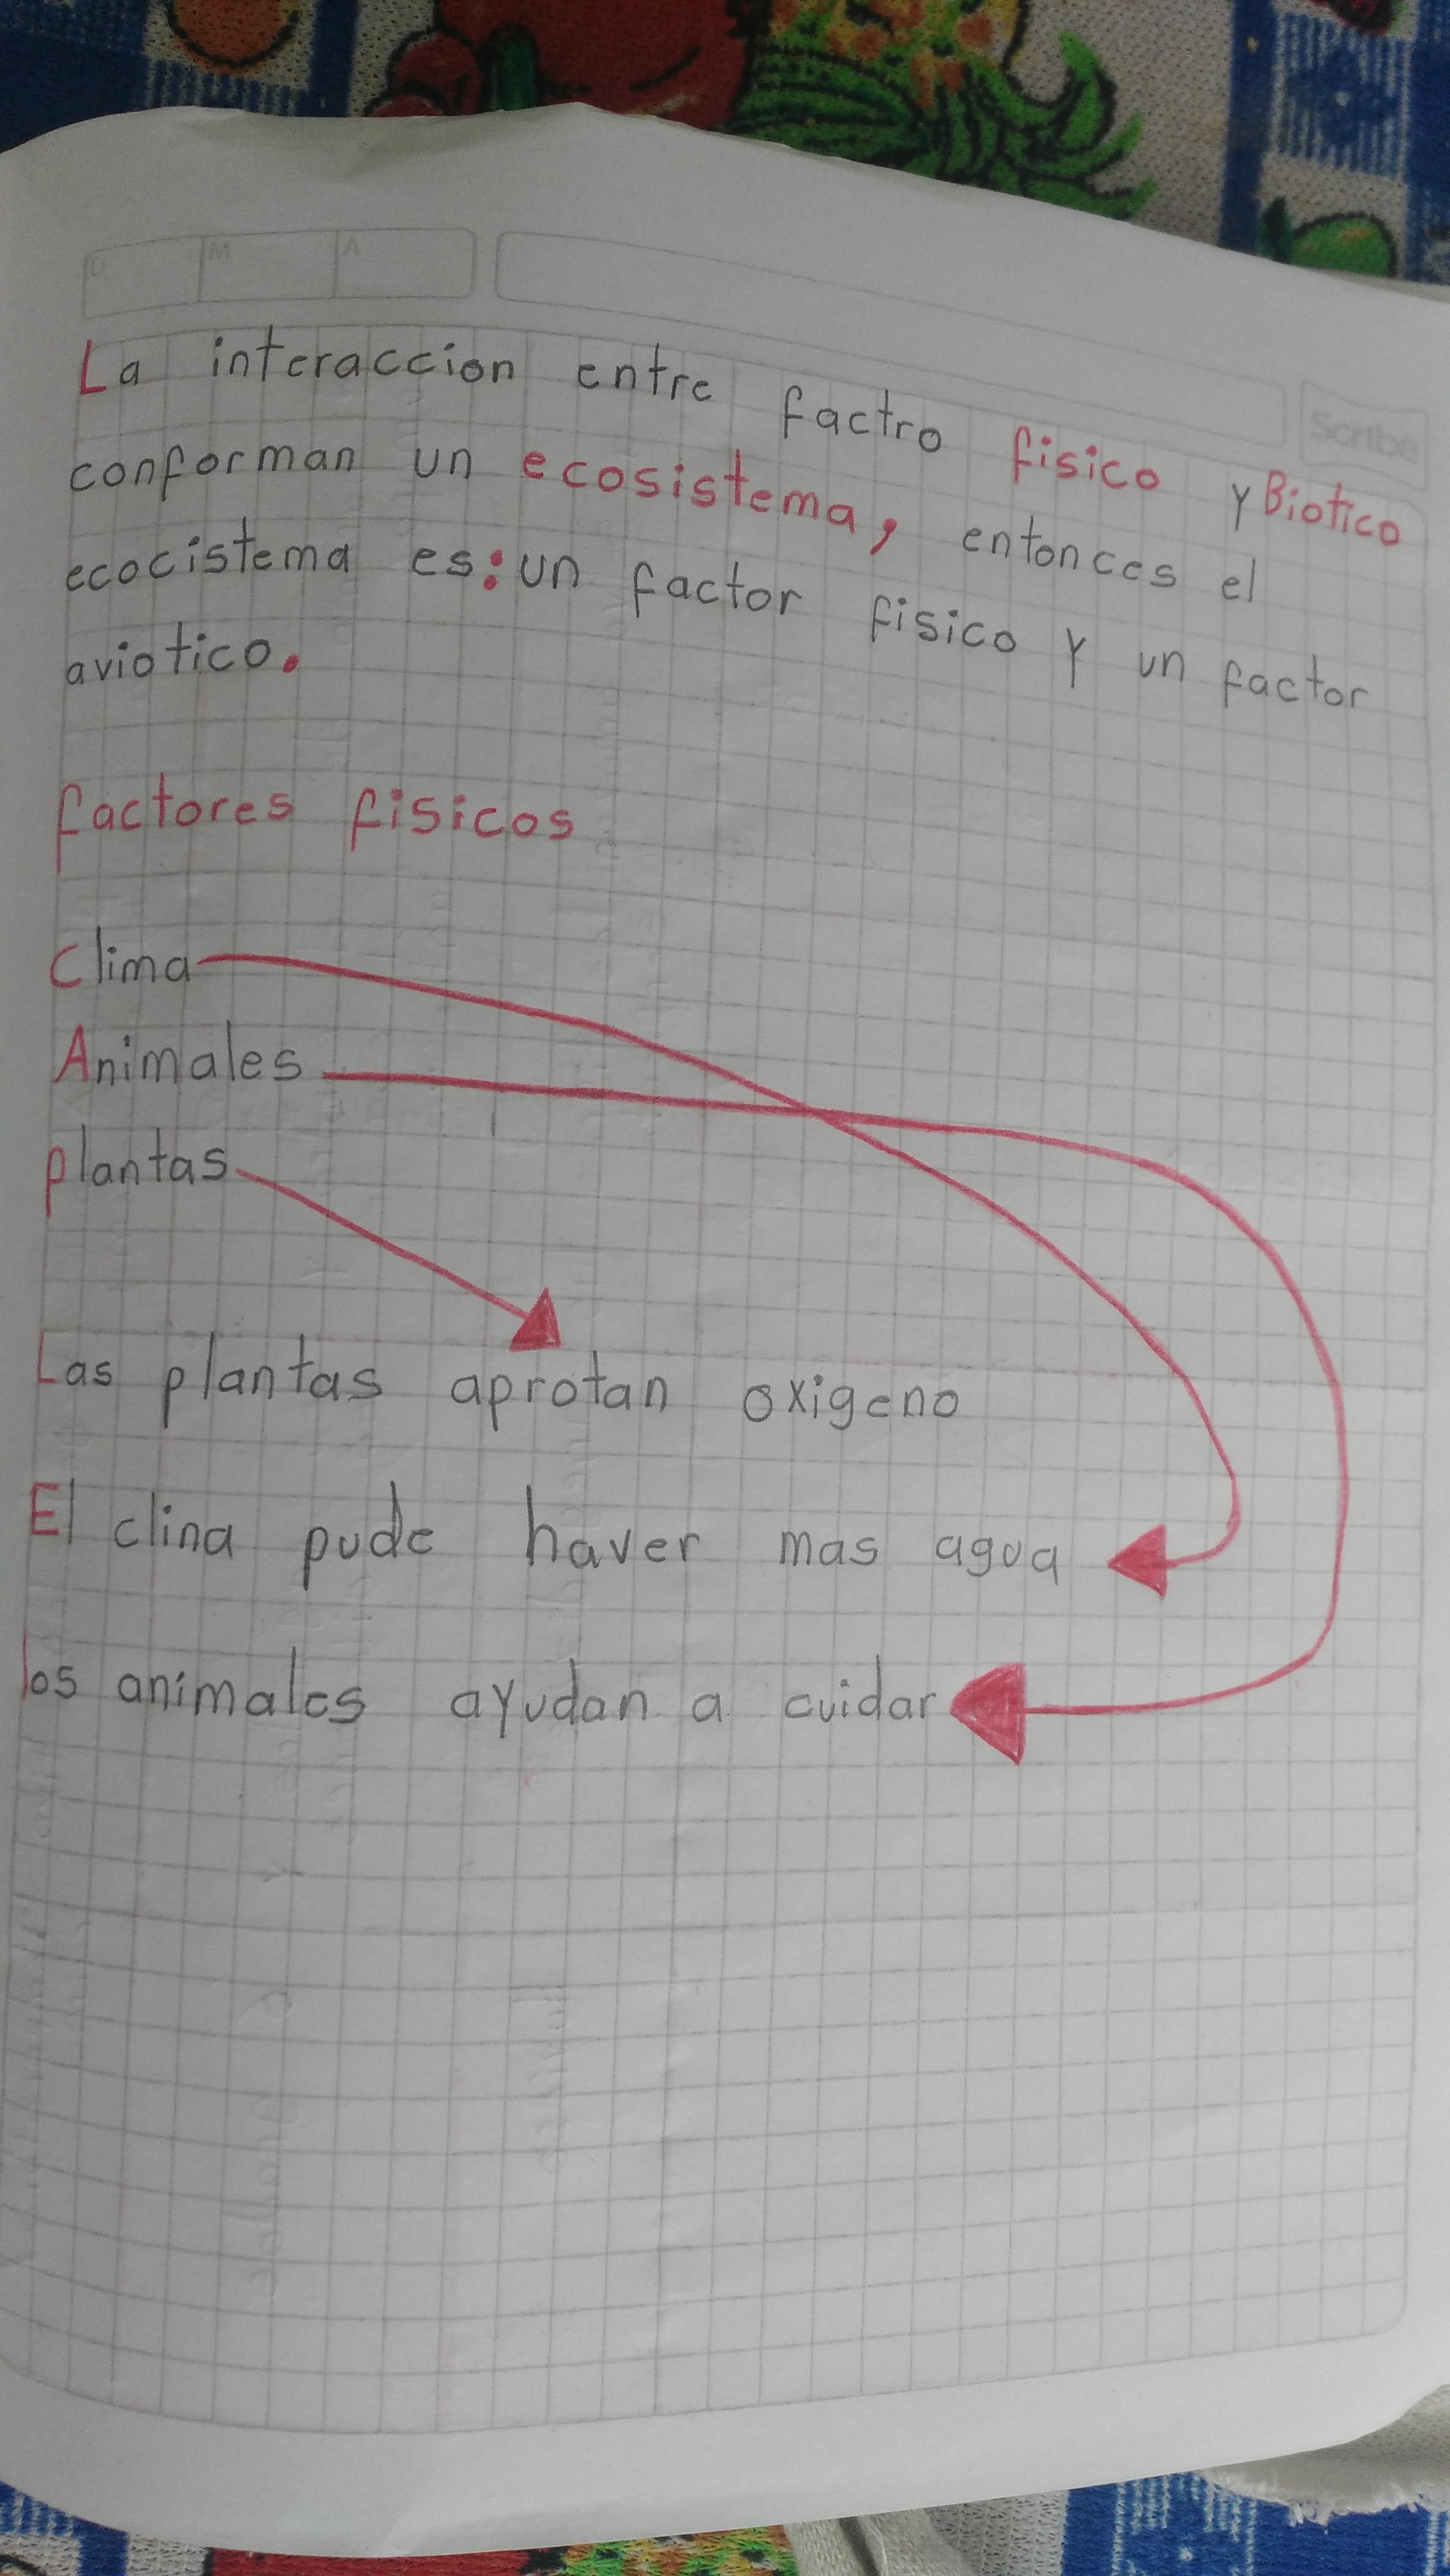 D M A
Scribe
La interaccion entre factro fisico y Biotico
conforman un ecosistema, entonces el
ecocistema es: un factor fisico y un factor
aviotico.
factores fisicos
Clima
Animales
plantas
Las plantas aprotan oxigeno
El clina pude haver mas agua
los animales ayudan a cuidar